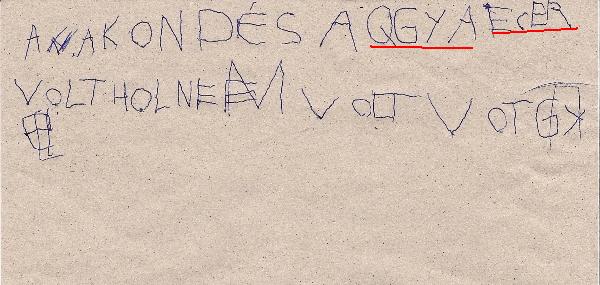 ANAKONDÉS A QGYA ECER
VOLT HOL NEM VOLT VOT